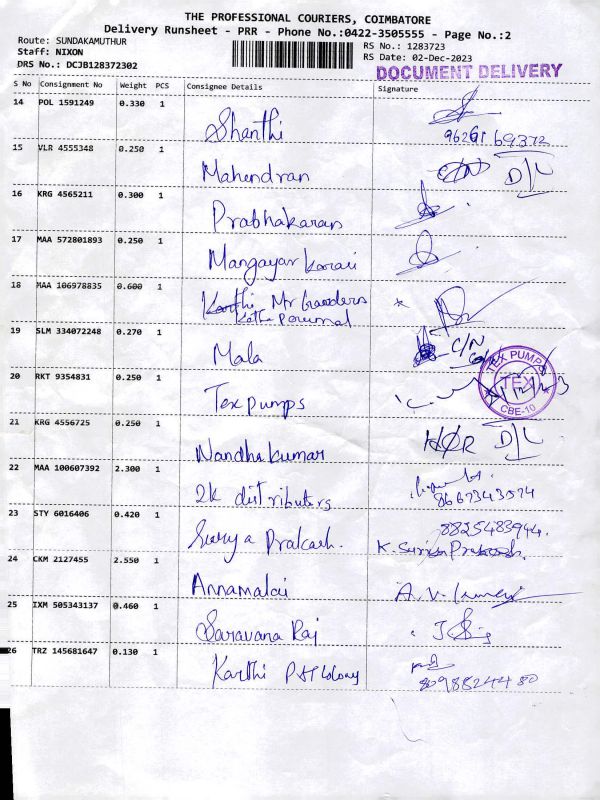 THE PROFESSIONAL COURIERS, COIMBATORE
Delivery Runsheet - PRR - Phone No.:0422-3505555 - Page No.:2
Route: SUNDAKAMUTHUR
Staff: NIXON
DRS No.: DCJB128372302
RS No.: 1283723
RS Date: 02-Dec-2023
DOCUMENT DELIVERY
S No Consignment No Weight PCS Consignee Details Signature
14 POL 1591249 0.330 1 Shanthi
69372
15 VLR 4555348 0.250 1 Mahendran D/L
16 KRG 4565211 0.300 1 Prabhakaran
17 MAA 572801893 0.250 1 Mangayar
18 MAA 106978835 0.600 1 Karthi Mr
19 SLM 334072248 0.270 1 Mala C/N
20 RKT 9354831 0.250 1 Tex pumps
TEX PUMPS
TEX
CBE-10
21 KRG 4556725 0.250 1 Nandhakumar D/L
22 MAA 100607392 2.300 1 2k distributers
8667343574
23 STY 6016406 0.420 1 Surya Prakash.
8825483944.
K. Surya Prakash.
24 CKM 2127455 2.550 1 Annamalai A.V.
25 IXM 505343137 0.460 1 Saravana Raj
26 TRZ 145681647 0.130 1 Karthi P&T Colony
8098824480